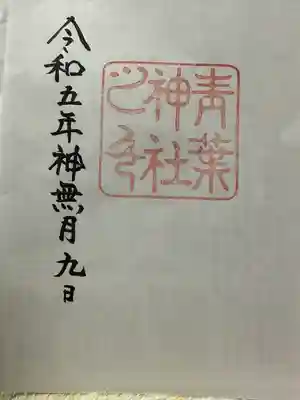 青葉
神社
之璽
令和五年神無月九日